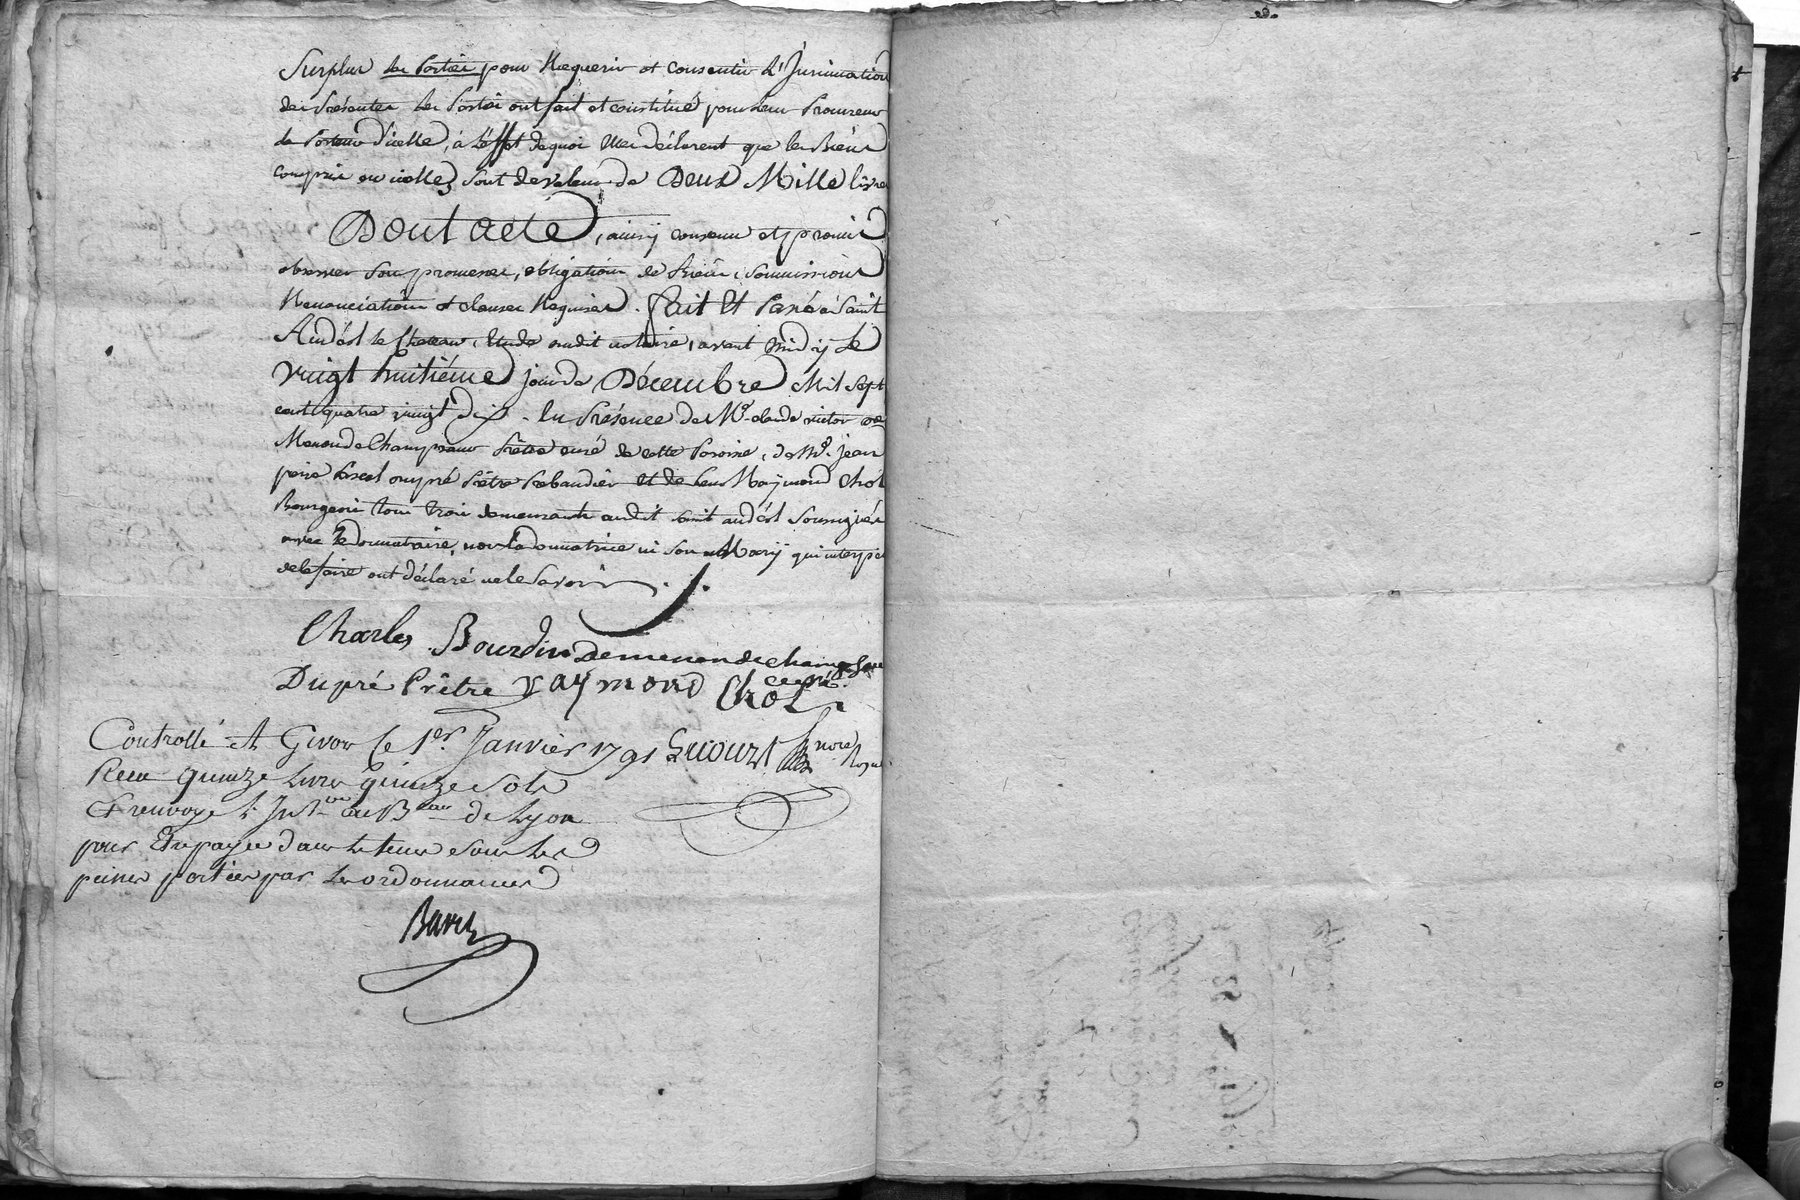 Surplus les Parties pour Requerir et consentir L'Jnsinuation
des presentes les Parties ont fait et constitué pour leur Procureur
le Porteur d'icelles, à L'effet de quoi Elles déclarent que les Biens
compris en icelles, sont de valeur de Deux Mille livres
Dont acte, ainsy convenu et promis
observer sous promesses, obligation de Biens, soumissions
Renonciations et clauses Requises. fait et Passé à Saint
Andéol le Chateau, Etude dudit notaire, avant midy Le
vingt huitiéme jour de Décembre Mil sept
cent quatre vingt dix. En Présence de Mre claude victor de
Menon de Champsaur Prêtre curé de cette Paroisse, de Mre jean
Dupré Prêtre Prebandier et de Raymond Chol
Bourgeois tous trois demeurants audit saint andéol soussignés
avec le donnataire, non la donnatrice ni son Mary qui interpellés
de le faire ont déclaré ne le Savoir.
Charles Bourdin De menon de champsaur
curé
Dupré Prêtre Raymond Chol
Controllé A Givors le 1er Janvier 1791
nore Royal
Recu quinze livres quinze sols
Et renvoyé L'Insion au Beau de Lyon
pour Etre payée dans le tems sous les
peines portées par les ordonnances